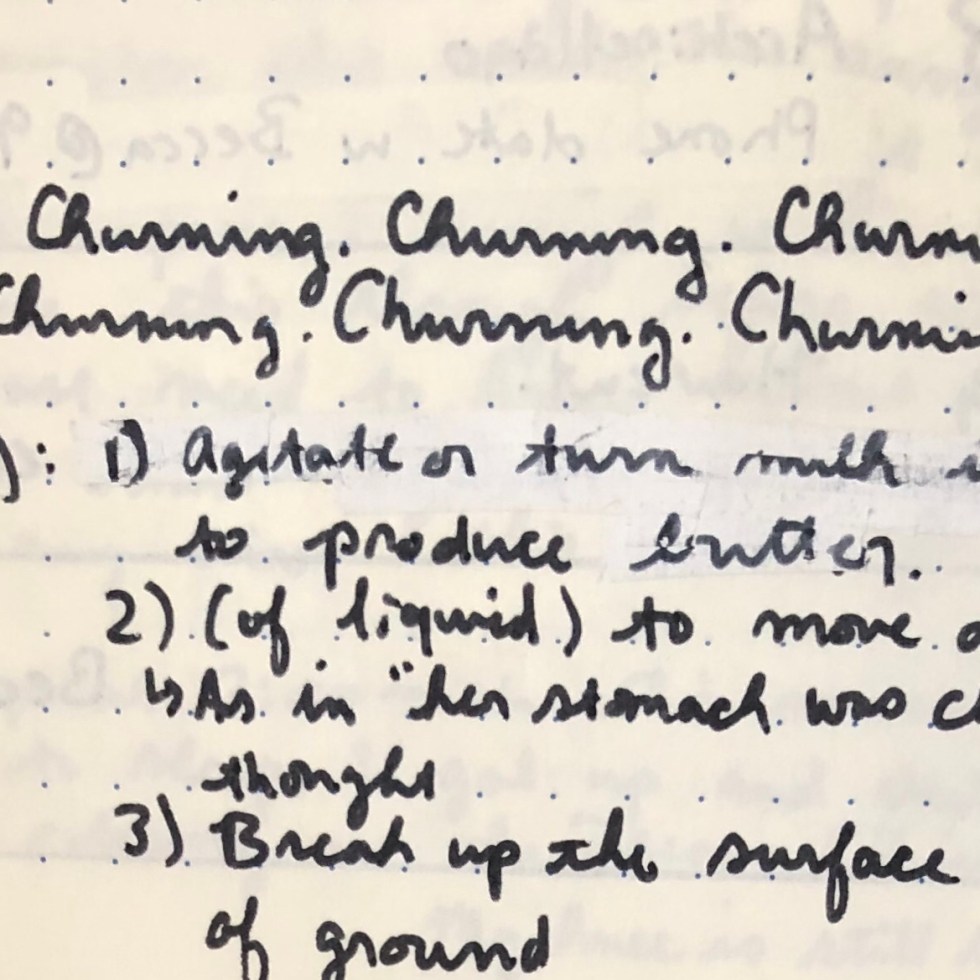 Churning. Churning. Churn
Churning. Churning. Churni
): 1) Agitate or turn milk
to produce butter.
2) (of liquid) to move
↳ As in "her stomach was c
thought
3) Break up the surface
of ground